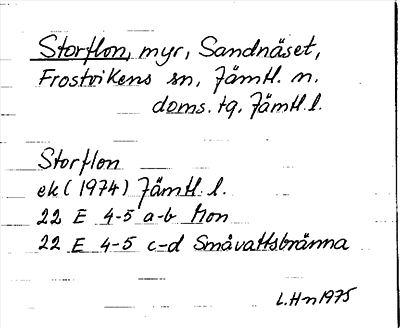 Storflon, myr, Sandnäset,
Frostvikens sn, Jämtl. n.
doms. tg, Jämtl. l.
Storflon
ek (1974) Jämtl. l.
22 E 4-5 a-b Mon
22 E 4-5 c-d Småvattsbränna
L.Hn 1975